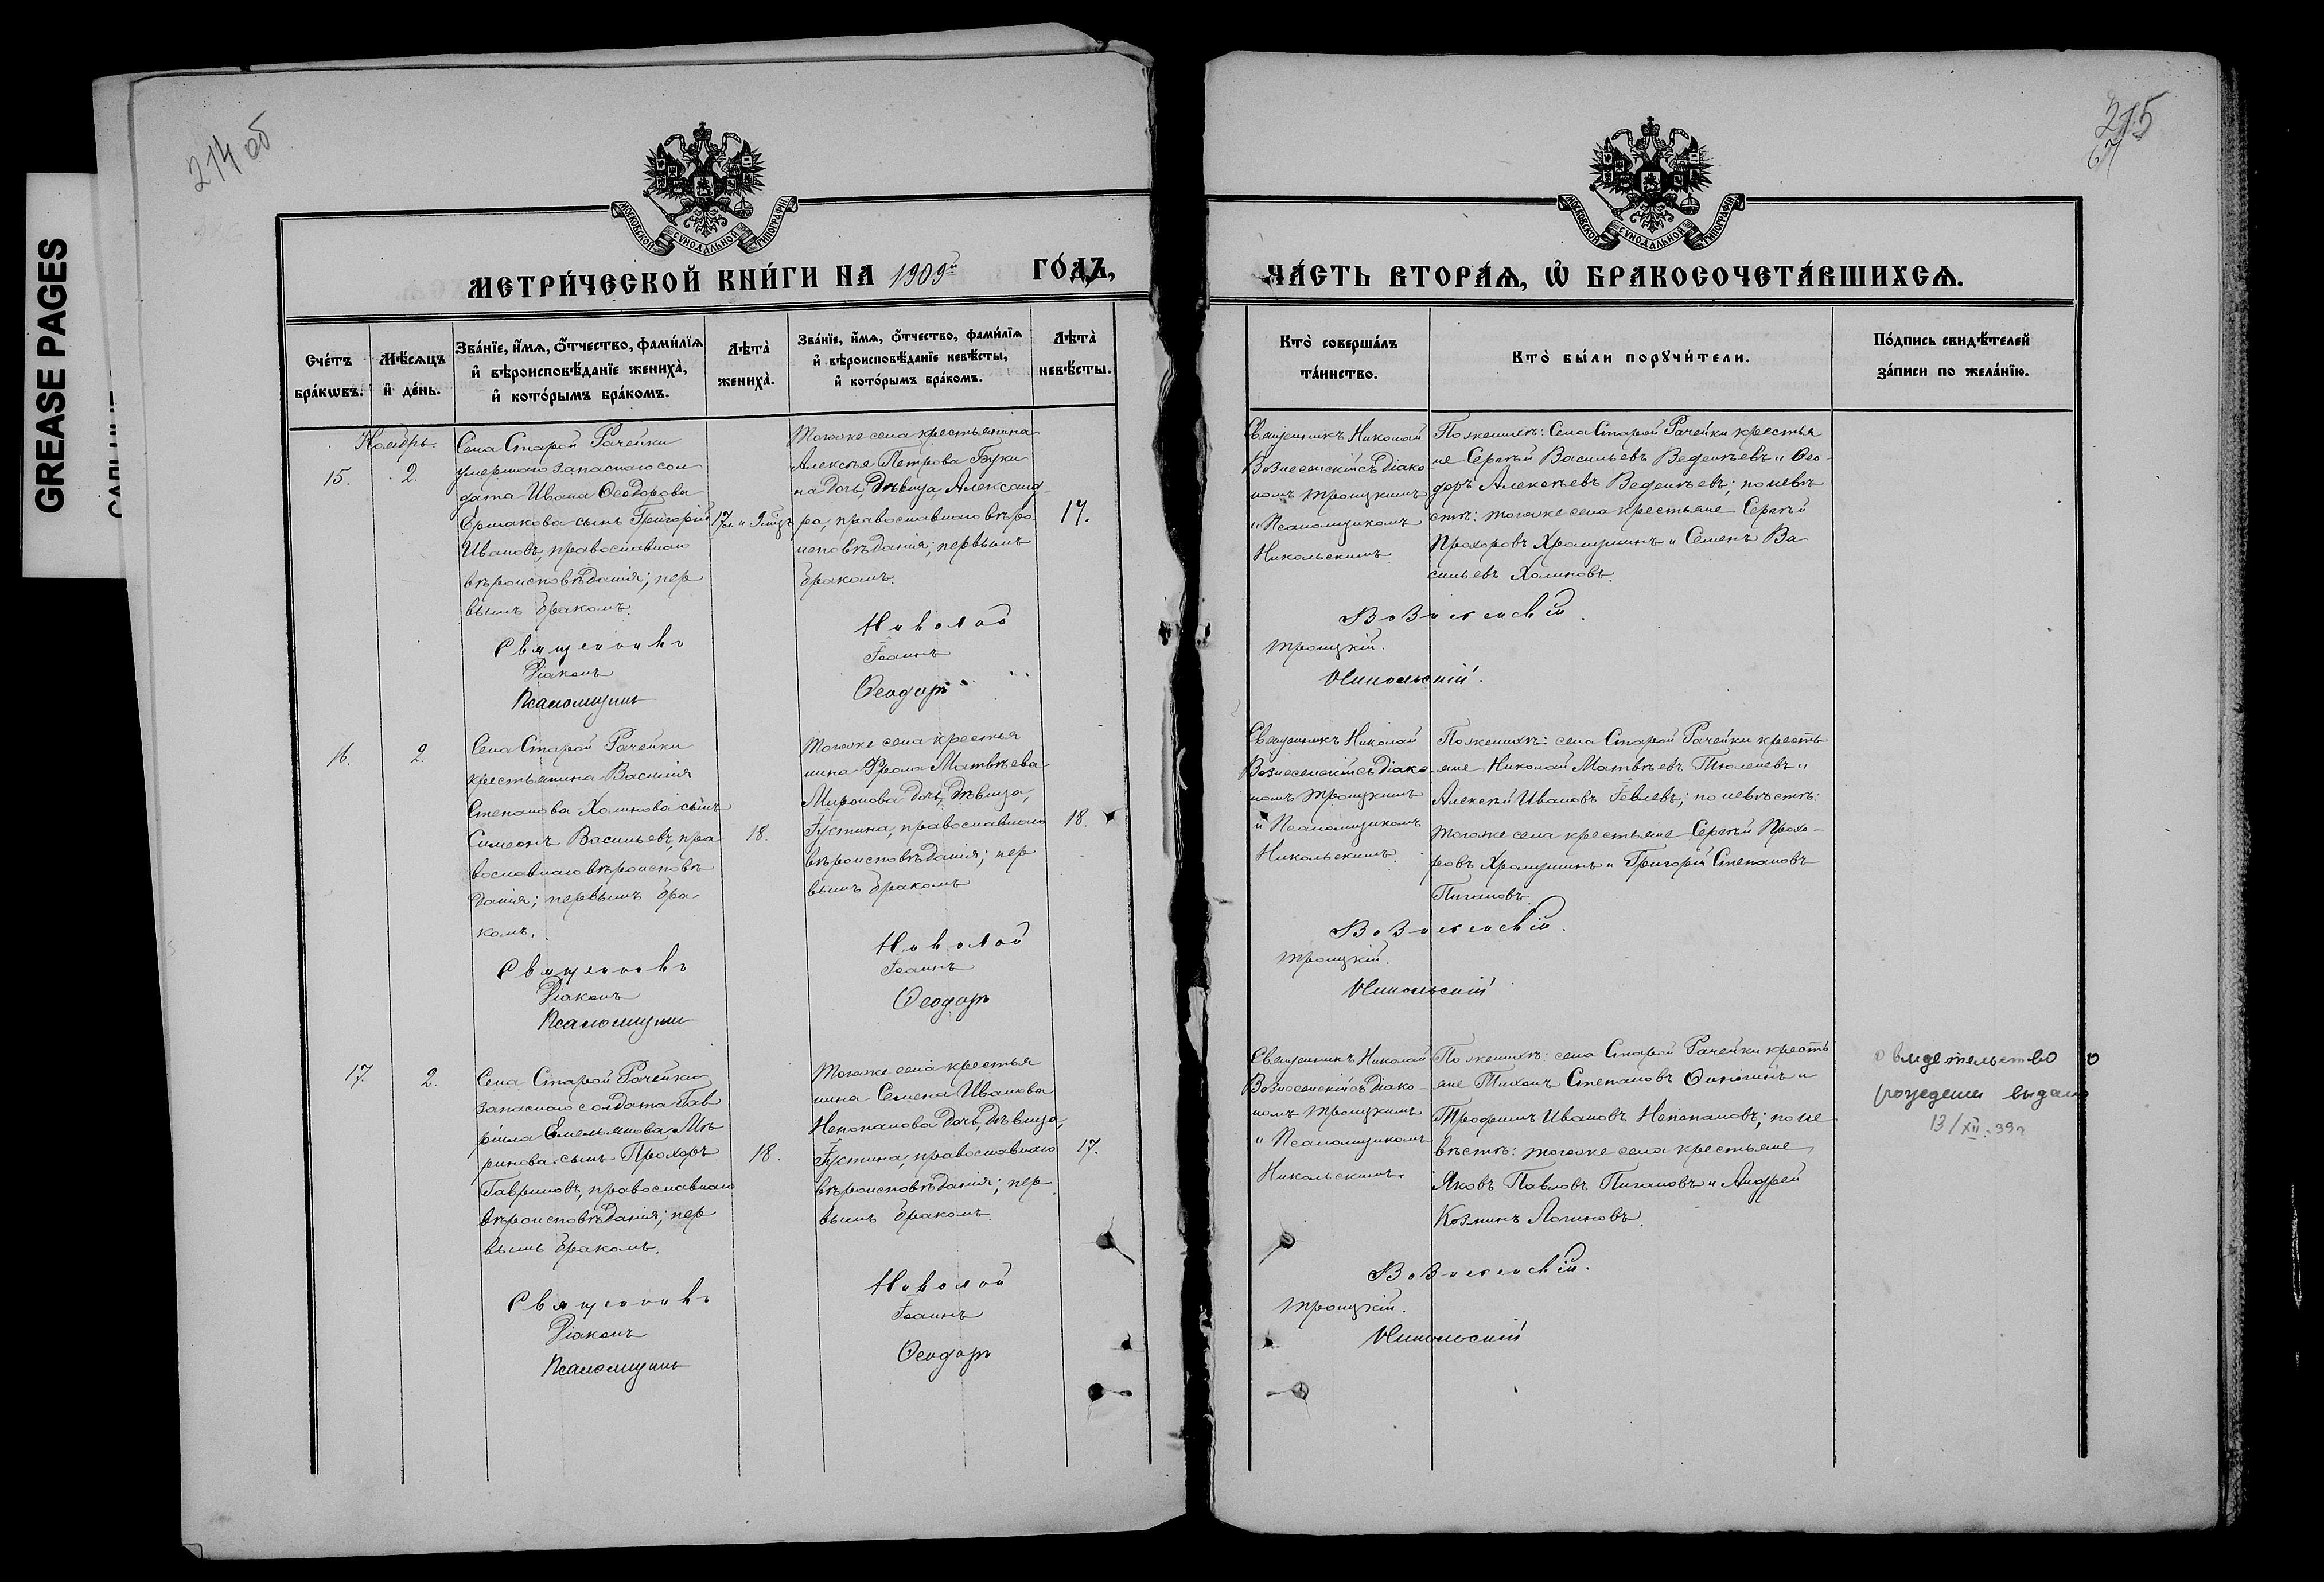 GREASE PAGES
214 об
215
МОСКОВСКОЙ СѴНОДАЛЬНОЙ ТИПОГРАФІИ
МОСКОВСКОЙ СѴНОДАЛЬНОЙ ТИПОГРАФІИ
МЕТРИ́ЧЕСКОЙ КНИ́ГИ НА 1909й ГО́ДЪ,
Сче́тъ бра́кѡвъ.
Мѣ́сяцъ и҆ де́нь.
Зва́нїе, и҆́мѧ, ѻ҆́тчество, фами́лїѧ
и҆ вѣроисповѣ́данїе женихà,
и҆ кото́рымъ бра́комъ.
Лѣтà женихà.
Зва́нїе, и҆́мѧ, ѻ҆́тчество, фами́лїѧ
и҆ вѣроисповѣ́данїе невѣ́сты,
и҆ кото́рымъ бра́комъ.
Лѣтà невѣ́сты.
Ноябрь.
15.
2.
Села Старой Рачейки
умершаго запаснаго сол
дата Ивана Ѳеодорова
Ермакова сынъ Григорій
Ивановъ, православнаго
вѣроисповѣданія; пер
вымъ бракомъ.
Тогоже села крестьянина
Алексѣя Петрова Буки
на дочь, дѣвица, Александ
ра, православнаго вѣро
исповѣданія; первымъ
бракомъ.
17.
Священникъ Николай
Діаконъ Іоаннъ
Псаломщикъ Ѳеодоръ
16.
2.
Села Старой Рачейки
крестьянина Василія
Степанова Холинова сынъ
Симеонъ Васильевъ, пра
вославнаго вѣроисповѣ
данія; первымъ бра
комъ.
18.
Тогоже села крестья
нина Фрола Матвѣева
Миронова дочь, дѣвица,
Іустина, православнаго
вѣроисповѣданія; пер
вымъ бракомъ
18.
Священникъ Николай
Діаконъ Іоаннъ
Псаломщикъ Ѳеодоръ
17.
2.
Села Старой Рачейки
запаснаго солдата Гав
ріила Емельянова
сынъ Прохоръ
Гавриловъ, православнаго
вѣроисповѣданія; пер
вымъ бракомъ.
18.
Тогоже села крестья
нина Семена Иванова
Непопанова дочь, дѣвица,
Іустина, православнаго
вѣроисповѣданія; пер
вымъ бракомъ.
17.
Священникъ Николай
Діаконъ Іоаннъ
Псаломщикъ Ѳеодоръ
ЧА́СТЬ ВТОРА́Ѧ, Ѽ БРАКОСОЧЕТА́ВШИХСѦ.
Ктò соверша́лъ
та́инство.
Ктò бы́ли порꙋчи́тели.
По́дпись свидѣ́телей
за́писи по жела́нїю.
Священникъ Николай
Вознесенскій съ Діако
номъ Троицкимъ
и Псаломщикомъ
Никольскимъ.
По женихѣ: Села Старой Рачейки крестья
не Сергѣй Васильевъ Веденѣевъ и Ѳео-
доръ Алексѣевъ Веденѣевъ; по невѣ
стѣ: тогоже села крестьяне Сергѣй
Прохоровъ Хромушинъ и Семенъ Ва
сильевъ Холиновъ.
Вознесенскій.
Троицкій.
Никольскій.
Священникъ Николай
Вознесенскій съ Діако
номъ Троицкимъ
и Псаломщикомъ
Никольскимъ.
По женихѣ: села Старой Рачейки кресть
яне Николай Матвѣевъ Тюленевъ и
Алексѣй Ивановъ Іевлевъ; по невѣстѣ:
тогоже села крестьяне Сергѣй Прохо-
ровъ Хромушинъ и Григорій Степановъ
Пигановъ.
Вознесенскій.
Троицкій.
Никольскій
Священникъ Николай
Вознесенскій съ Діако-
номъ Троицкимъ
и Псаломщикомъ
Никольскимъ.
По женихѣ: села Старой Рачейки кресть
яне Тихонъ Степановъ и
Трофимъ Ивановъ Непопановъ; по не
вѣстѣ: тогоже села крестьяне
Яковъ Павловъ Пигановъ и Андрей
Козминъ Логиновъ.
свидетельство о
рождении выдано
13/XII-39г
Вознесенскій.
Троицкій.
Никольскій